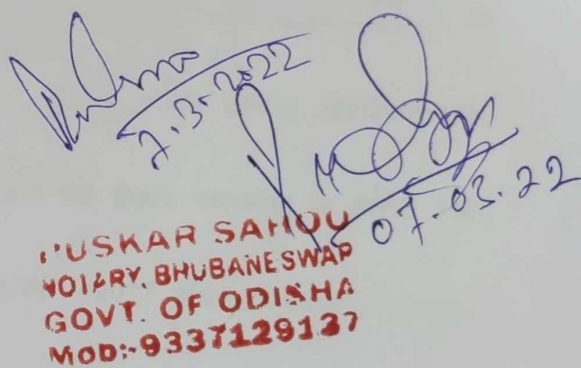 7.3.2022
07.03.22
PUSKAR SAHOU
NOTARY, BHUBANESWAR
GOVT. OF ODISHA
MOD:-9337129127